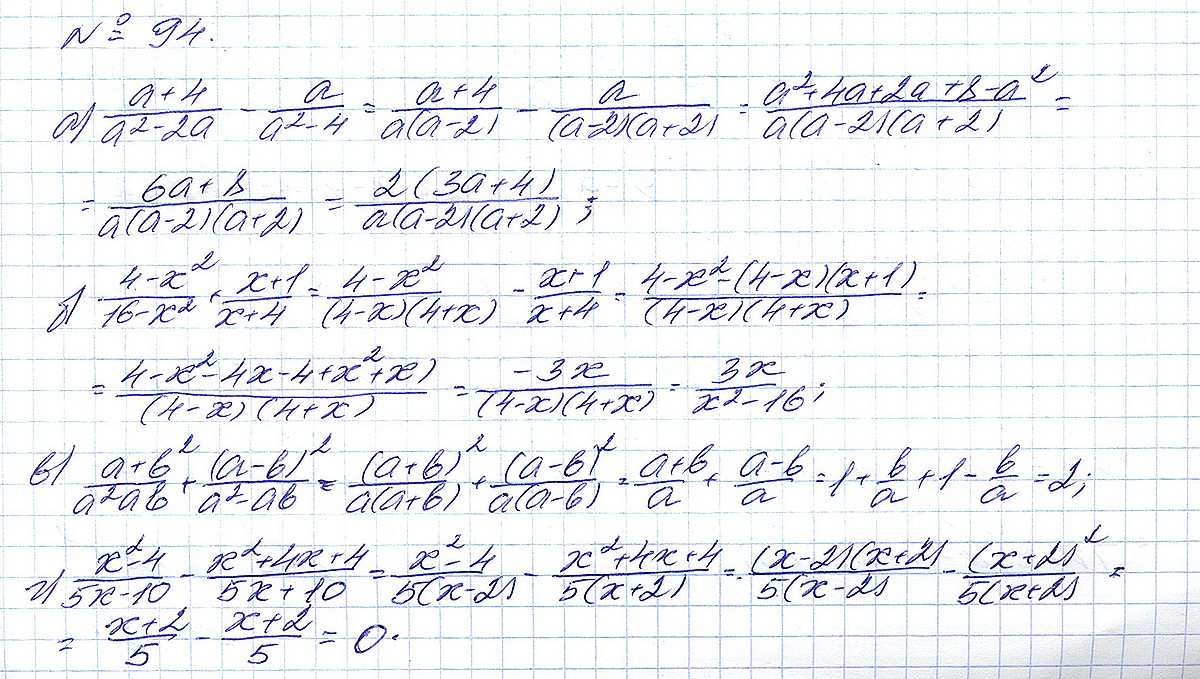 № 94.
а) (a+4)/(a²-2a) - a/(a²-4) = (a+4)/(a(a-2)) - a/((a-2)(a+2)) = (a²+4a+2a+8-a²)/(a(a-2)(a+2)) =
= (6a+8)/(a(a-2)(a+2)) = 2(3a+4)/(a(a-2)(a+2)) ;
б) (4-x²)/(16-x²) · (x+1)/(x+4) = (4-x²)/((4-x)(4+x)) - (x+1)/(x+4) = (4-x²-(4-x)(x+1))/((4-x)(4+x)) =
= (4-x²-4x-4+x²+x))/((4-x)(4+x)) = (-3x)/((4-x)(4+x)) = 3x/(x²-16) ;
в) (a+b²)/(a²ab) + (a-b)²/(a²-ab) = (a+b)²/(a(a+b)) + (a-b)²/(a(a-b)) = (a+b)/a + (a-b)/a = 1 + b/a + 1 - b/a = 2;
г) (x²-4)/(5x-10) - (x²+4x+4)/(5x+10) = (x²-4)/(5(x-2)) - (x²+4x+4)/(5(x+2)) = (x-2)(x+2)/(5(x-2)) - (x+2)²/(5(x+2)) =
= (x+2)/5 - (x+2)/5 = 0.